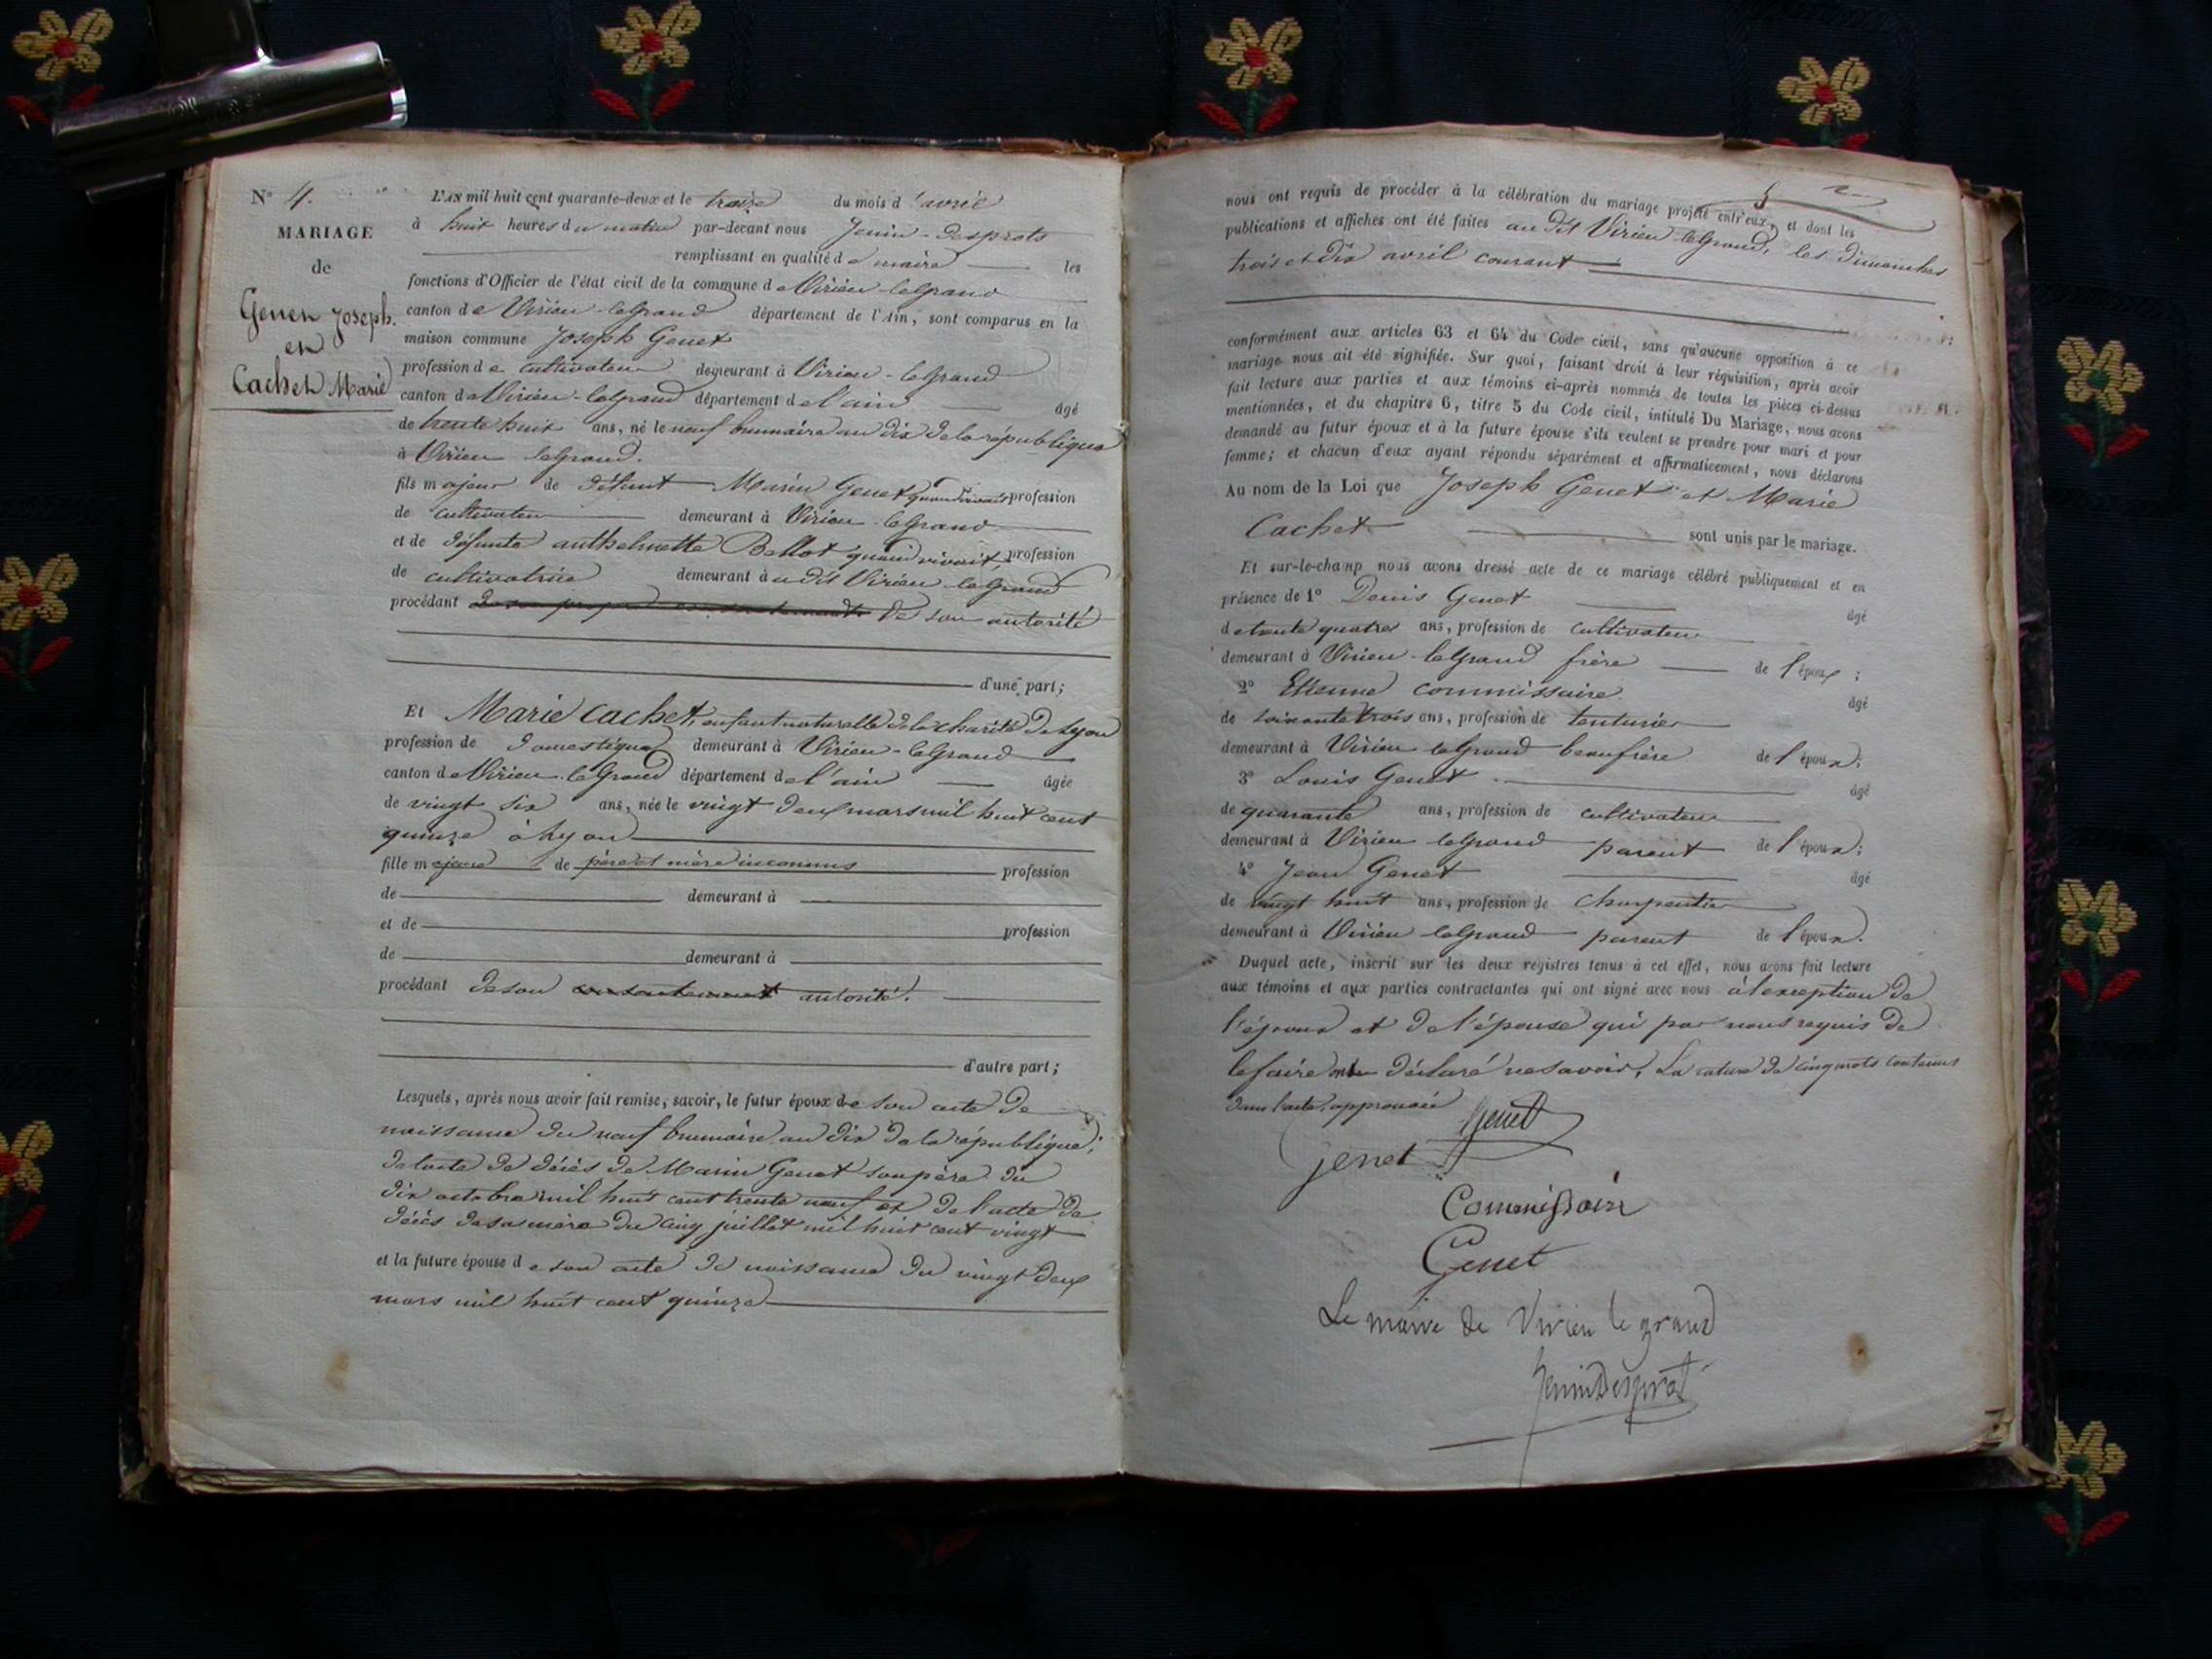 N° 4.
MARIAGE
de
Genet Joseph.
et
Cachet Marie
L'AN mil huit cent quarante-deux et le treize du mois d'avril
à huit heures du matin par-devant nous Jenin-Desprots
remplissant en qualité de maire les
fonctions d'Officier de l'état civil de la commune de Virieu-leGrand
canton de Virieu-leGrand département de l'Ain, sont comparus en la
maison commune Joseph Genet
profession de cultivateur demeurant à Virieu-leGrand
canton de Virieu-leGrand département de l'ain âgé
de trente huit ans, né le neuf brumaire an dix de la république
à Virieu leGrand.
fils majeur de défunt Marin Genet quand vivait profession
de cultivateur demeurant à Virieu-leGrand
et de défunte anthelmette Bellot quand vivait profession
de cultivatrice demeurant audit Virieu-leGrand
procédant de son propre consentement de son autorité
d'une part;
Et Marie Cachet, enfant naturelle de la charité de Lyon
profession de domestique demeurant à Virieu-leGrand
canton de Virieu-leGrand département de l'ain âgée
de vingt six ans, née le vingt deux mars mil huit cent
quinze à Lyon
fille majeure de père et mère inconnus profession
de demeurant à
et de profession
de demeurant à
procédant de son consentement autorité.
d'autre part;
Lesquels, après nous avoir fait remise, savoir, le futur époux de son acte de
naissance du neuf brumaire an dix de la république;
de l'acte de décès de Marin Genet son père du
dix octobre mil huit cent trente neuf et de l'acte de
décès de sa mère du cinq juillet mil huit cent vingt
et la future épouse de son acte de naissance du vingt deux
mars mil huit cent quinze
nous ont requis de procéder à la célébration du mariage projeté entr'eux, et dont les
publications et affiches ont été faites au dit Virieu-leGrand, les dimanches
trois et dix avril courant
conformément aux articles 63 et 64 du Code civil, sans qu'aucune opposition à ce
mariage nous ait été signifiée. Sur quoi, faisant droit à leur réquisition, après avoir
fait lecture aux parties et aux témoins ci-après nommés de toutes les pièces ci-dessus
mentionnées, et du chapitre 6, titre 5 du Code civil, intitulé Du Mariage, nous avons
demandé au futur époux et à la future épouse s'ils veulent se prendre pour mari et pour
femme; et chacun d'eux ayant répondu séparément et affirmativement, nous déclarons
Au nom de la Loi que Joseph Genet et Marie
Cachet sont unis par le mariage.
Et sur-le-champ nous avons dressé acte de ce mariage célébré publiquement et en
présence de 1° Denis Genet âgé
de trente quatre ans, profession de cultivateur
demeurant à Virieu-leGrand frère de l'époux;
2° Etienne commissaire âgé
de soixante trois ans, profession de teinturier
demeurant à Virieu leGrand beaufrère de l'époux;
3° Louis Genet âgé
de quarante ans, profession de cultivateur
demeurant à Virieu leGrand parent de l'époux;
4° Jean Genet âgé
de vingt huit ans, profession de charpentier
demeurant à Virieu leGrand parent de l'époux.
Duquel acte, inscrit sur les deux registres tenus à cet effet, nous avons fait lecture
aux témoins et aux parties contractantes qui ont signé avec nous à l'exception de
l'époux et de l'épouse qui par nous requis de
le faire ont déclaré ne savoir, La rature de cinq mots contenus
dans l'acte, approuvée
Genet
Jenet
Commissaire
Genet
Le maire de Virieu le grand
JeninDesprot